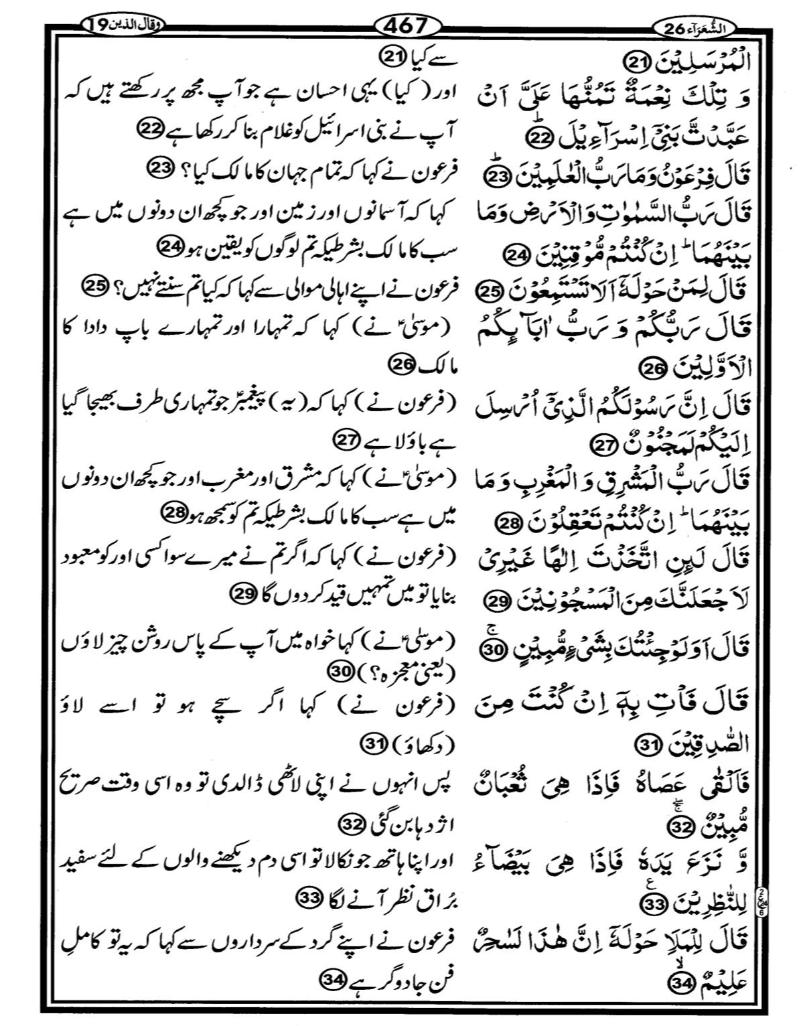 الشُّعَرَآء 26
467
وقال الذین 19
الْمُرْسَلِيْنَ 21
وَ تِلْكَ نِعْمَةٌ تَمُنُّهَا عَلَيَّ اَنْ
عَبَّدْتَّ بَنِيْٓ اِسْرَآءِيْلَ ؕ 22
قَالَ فِرْعَوْنُ وَمَا رَبُّ الْعٰلَمِيْنَ ؕ 23
قَالَ رَبُّ السَّمٰوٰتِ وَالْاَرْضِ وَمَا
بَيْنَهُمَا ؕ اِنْ كُنْتُمْ مُّوْقِنِيْنَ 24
قَالَ لِمَنْ حَوْلَهٗٓ اَلَا تَسْتَمِعُوْنَ 25
قَالَ رَبُّكُمْ وَ رَبُّ اٰبَآىِٕكُمُ
الْاَوَّلِيْنَ 26
قَالَ اِنَّ رَسُوْلَكُمُ الَّذِيْٓ اُرْسِلَ
اِلَيْكُمْ لَمَجْنُوْنٌ 27
قَالَ رَبُّ الْمَشْرِقِ وَ الْمَغْرِبِ وَ مَا
بَيْنَهُمَا ؕ اِنْ كُنْتُمْ تَعْقِلُوْنَ 28
قَالَ لَىِٕنِ اتَّخَذْتَ اِلٰهًا غَيْرِيْ
لَاَجْعَلَنَّكَ مِنَ الْمَسْجُوْنِيْنَ 29
قَالَ اَوَلَوْ جِئْتُكَ بِشَيْءٍ مُّبِيْنٍ ۚ 30
قَالَ فَاْتِ بِهٖٓ اِنْ كُنْتَ مِنَ
الصّٰدِقِيْنَ 31
فَاَلْقٰى عَصَاهُ فَاِذَا هِيَ ثُعْبَانٌ
مُّبِيْنٌ ۚۖ 32
وَّ نَزَعَ يَدَهٗ فَاِذَا هِيَ بَيْضَآءُ
لِلنّٰظِرِيْنَ ع 33
قَالَ لِلْمَلَاِ حَوْلَهٗٓ اِنَّ هٰذَا لَسٰحِرٌ
عَلِيْمٌ ۙ 34
سے کیا 21
اور (کیا) یہی احسان ہے جو آپ مجھ پر رکھتے ہیں کہ
آپ نے بنی اسرائیل کو غلام بنا کر رکھا ہے 22
فرعون نے کہا کہ تمام جہان کا مالک کیا؟ 23
کہا کہ آسمانوں اور زمین اور جو کچھ ان دونوں میں ہے
سب کا مالک بشرطیکہ تم لوگوں کو یقین ہو 24
فرعون نے اپنے اہالی موالی سے کہا کہ کیا تم سنتے نہیں؟ 25
(موسٰیؑ نے) کہا کہ تمہارا اور تمہارے باپ دادا کا
مالک 26
(فرعون نے) کہا کہ (یہ) پیغمبرؑ جو تمہاری طرف بھیجا گیا
ہے باؤلا ہے 27
(موسٰیؑ نے) کہا کہ مشرق اور مغرب اور جو کچھ ان دونوں
میں ہے سب کا مالک بشرطیکہ تم کو سمجھ ہو 28
(فرعون نے) کہا کہ اگر تم نے میرے سوا کسی اور کو معبود
بنایا تو میں تمہیں قید کردوں گا 29
(موسٰیؑ نے) کہا خواہ میں آپ کے پاس روشن چیز لاؤں
(یعنی معجزہ؟) 30
(فرعون نے) کہا اگر سچے ہو تو اسے لاؤ
(دکھاؤ) 31
پس انہوں نے اپنی لاٹھی ڈالدی تو وہ اسی وقت صریح
اژدہا بن گئی 32
اور اپنا ہاتھ جو نکالا تو اسی دم دیکھنے والوں کے لئے سفید
براق نظر آنے لگا 33
فرعون نے اپنے گرد کے سرداروں سے کہا کہ یہ تو کامل
فن جادوگر ہے 34